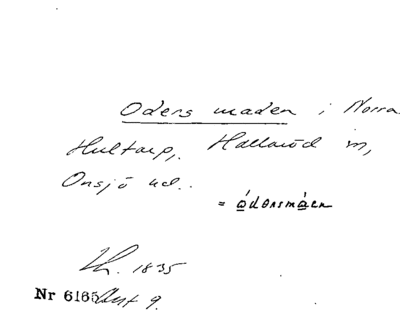 Oders maden i Norra
Hultarp, Hallaröd sn,
Onsjö hd.
= ådorsmåen
Lh. 1835
Nr 6165 Ant 9.